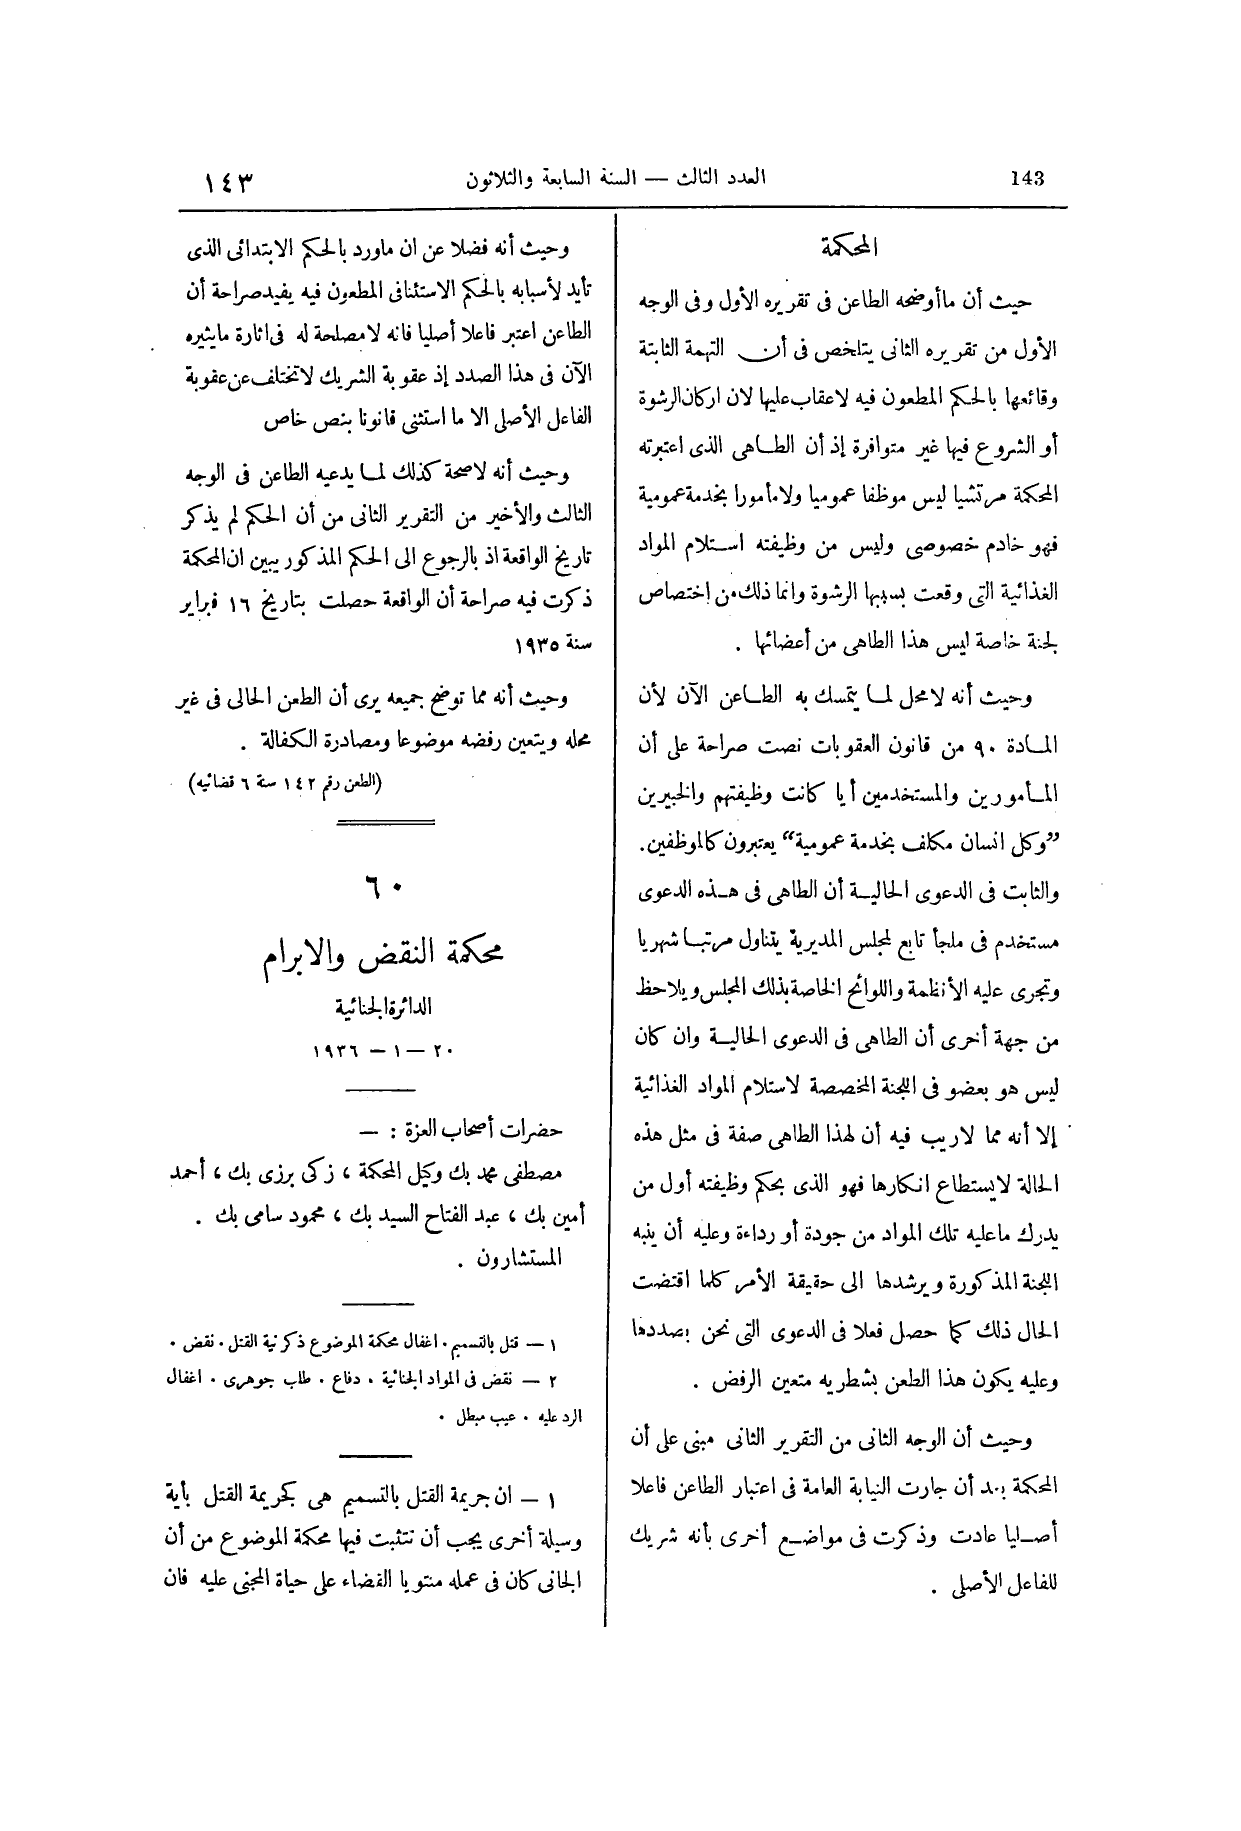 143
العدد الثالث — السنة السابعة والثلاثون
١٤٣
المحكمة
حيث أن ماأوضحه الطاعن فى تقريره الأول وفى الوجه
الأول من تقريره الثانى يتلخص فى أن التهمة الثابتة
وقائعها بالحكم المطعون فيه لاعقاب عليها لان اركان الرشوة
أو الشروع فيها غير متوافرة إذ أن الطاهى الذى اعتبرته
المحكمة مرتشيا ليس موظفا عموميا ولامأمورا بخدمة عمومية
فهو خادم خصوصى وليس من وظيفته استلام المواد
الغذائية التى وقعت بسببها الرشوة وانما ذلك من إختصاص
لجنة خاصة ليس هذا الطاهى من أعضائها .
وحيث أنه لامحل لما يتمسك به الطاعن الآن لأن
المادة ٩٠ من قانون العقوبات نصت صراحة على أن
المأمورين والمستخدمين أيا كانت وظيفتهم والخبيرين
”وكل انسان مكلف بخدمة عمومية“ يعتبرون كالموظفين.
والثابت فى الدعوى الحالية أن الطاهى فى هذه الدعوى
مستخدم فى ملجأ تابع لمجلس المديرية يتناول مرتبا شهريا
وتجرى عليه الأنظمة واللوائح الخاصة بذلك المجلس ويلاحظ
من جهة أخرى أن الطاهى فى الدعوى الحالية وان كان
ليس هو بعضو فى اللجنة المخصصة لاستلام المواد الغذائية
إلا أنه مما لاريب فيه أن لهذا الطاهى صفة فى مثل هذه
الحالة لايستطاع انكارها فهو الذى بحكم وظيفته أول من
يدرك ماعليه تلك المواد من جودة أو رداءة وعليه أن ينبه
اللجنة المذكورة ويرشدها الى حقيقة الأمر كلما اقتضت
الحال ذلك كما حصل فعلا فى الدعوى التى نحن بصددها
وعليه يكون هذا الطعن بشطريه متعين الرفض .
وحيث أن الوجه الثانى من التقرير الثانى مبنى على أن
المحكمة بعد أن جارت النيابة العامة فى اعتبار الطاعن فاعلا
أصليا عادت وذكرت فى مواضع أخرى بأنه شريك
للفاعل الأصلى .
وحيث أنه فضلا عن ان ماورد بالحكم الابتدائى الذى
تأيد لأسبابه بالحكم الاستئنافى المطعون فيه يفيد صراحة أن
الطاعن اعتبر فاعلا أصليا فانه لامصلحة له فى اثارة مايثيره
الآن فى هذا الصدد إذ عقوبة الشريك لاتختلف عن عقوبة
الفاعل الأصلى الا ما استثنى قانونا بنص خاص
وحيث أنه لاصحة كذلك لما يدعيه الطاعن فى الوجه
الثالث والأخير من التقرير الثانى من أن الحكم لم يذكر
تاريخ الواقعة اذ بالرجوع الى الحكم المذكور يبين ان المحكمة
ذكرت فيه صراحة أن الواقعة حصلت بتاريخ ١٦ فبراير
سنة ١٩٣٥
وحيث أنه مما توضح جميعه يرى أن الطعن الحالى فى غير
محله ويتعين رفضه موضوعا ومصادرة الكفالة .
(الطعن رقم ١٤٢ سنة ٦ قضائيه)
٦٠
محكمة النقض والابرام
الدائرة الجنائية
٢٠ — ١ — ١٩٣٦
حضرات أصحاب العزة : —
مصطفى محمد بك وكيل المحكمة ، زكى برزى بك ، أحمد
أمين بك ، عبد الفتاح السيد بك ، محمود سامى بك .
المستشارون .
١ — قتل بالتسميم . اغفال محكمة الموضوع ذكر نية القتل . نقض .
٢ — نقض فى المواد الجنائية . دفاع . طلب جوهرى . اغفال
الرد عليه . عيب مبطل .
١ — ان جريمة القتل بالتسميم هى كجريمة القتل بأية
وسيلة أخرى يجب أن تتثبت فيها محكمة الموضوع من أن
الجانى كان فى عمله منتويا القضاء على حياة المجنى عليه فان